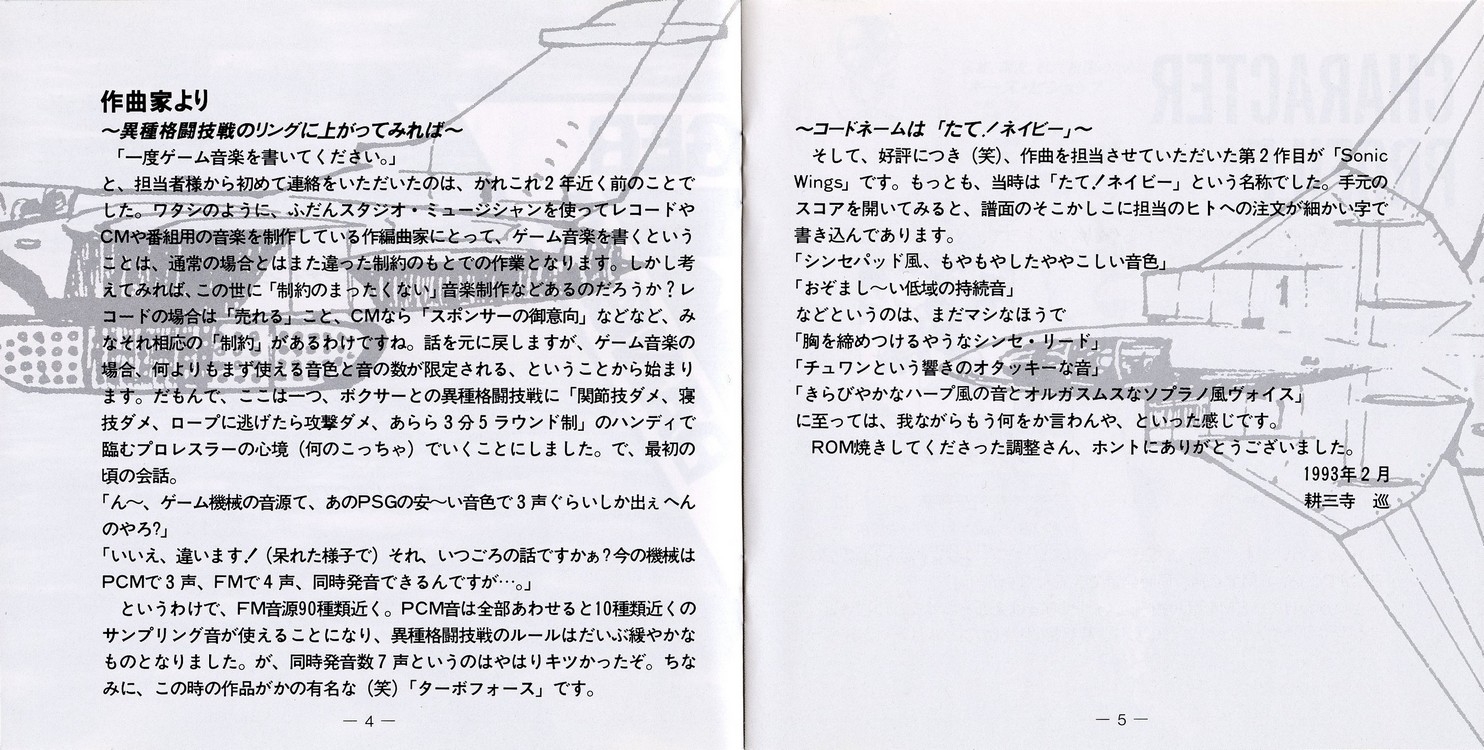 作曲家より
～異種格闘技戦のリングに上がってみれば～
「一度ゲーム音楽を書いてください。」
と、担当者様から初めて連絡をいただいたのは、かれこれ2年近く前のことで
した。ワタシのように、ふだんスタジオ・ミュージシャンを使ってレコードや
CMや番組用の音楽を制作している作編曲家にとって、ゲーム音楽を書くという
ことは、通常の場合とはまた違った制約のもとでの作業となります。しかし考
えてみれば、この世に「制約のまったくない」音楽制作などあるのだろうか？レ
コードの場合は「売れる」こと、CMなら「スポンサーの御意向」などなど、み
なそれ相応の「制約」があるわけですね。話を元に戻しますが、ゲーム音楽の
場合、何よりもまず使える音色と音の数が限定される、ということから始まり
ます。だもんで、ここは一つ、ボクサーとの異種格闘技戦に「関節技ダメ、寝
技ダメ、ロープに逃げたら攻撃ダメ、あらら3分5ラウンド制」のハンディで
臨むプロレスラーの心境（何のこっちゃ）でいくことにしました。で、最初の
頃の会話。
「ん～、ゲーム機械の音源て、あのPSGの安～い音色で3声ぐらいしか出ぇへん
のやろ?」
「いいえ、違います！（呆れた様子で）それ、いつごろの話ですかぁ？今の機械は
PCMで3声、FMで4声、同時発音できるんですが…。」
というわけで、FM音源90種類近く。PCM音は全部あわせると10種類近くの
サンプリング音が使えることになり、異種格闘技戦のルールはだいぶ緩やかな
ものとなりました。が、同時発音数7声というのはやはりキツかったぞ。ちな
みに、この時の作品がかの有名な（笑）「ターボフォース」です。
― 4 ―
～コードネームは「たて！ネイビー」～
そして、好評につき（笑）、作曲を担当させていただいた第2作目が「Sonic
Wings」です。もっとも、当時は「たて！ネイビー」という名称でした。手元の
スコアを開いてみると、譜面のそこかしこに担当のヒトへの注文が細かい字で
書き込んであります。
「シンセパッド風、もやもやしたややこしい音色」
「おぞまし～い低域の持続音」
などというのは、まだマシなほうで
「胸を締めつけるやうなシンセ・リード」
「チュワンという響きのオタッキーな音」
「きらびやかなハープ風の音とオルガスムスなソプラノ風ヴォイス」
に至っては、我ながらもう何をか言わんや、といった感じです。
ROM焼きしてくださった調整さん、ホントにありがとうございました。
1993年2月
耕三寺　巡
1
― 5 ―